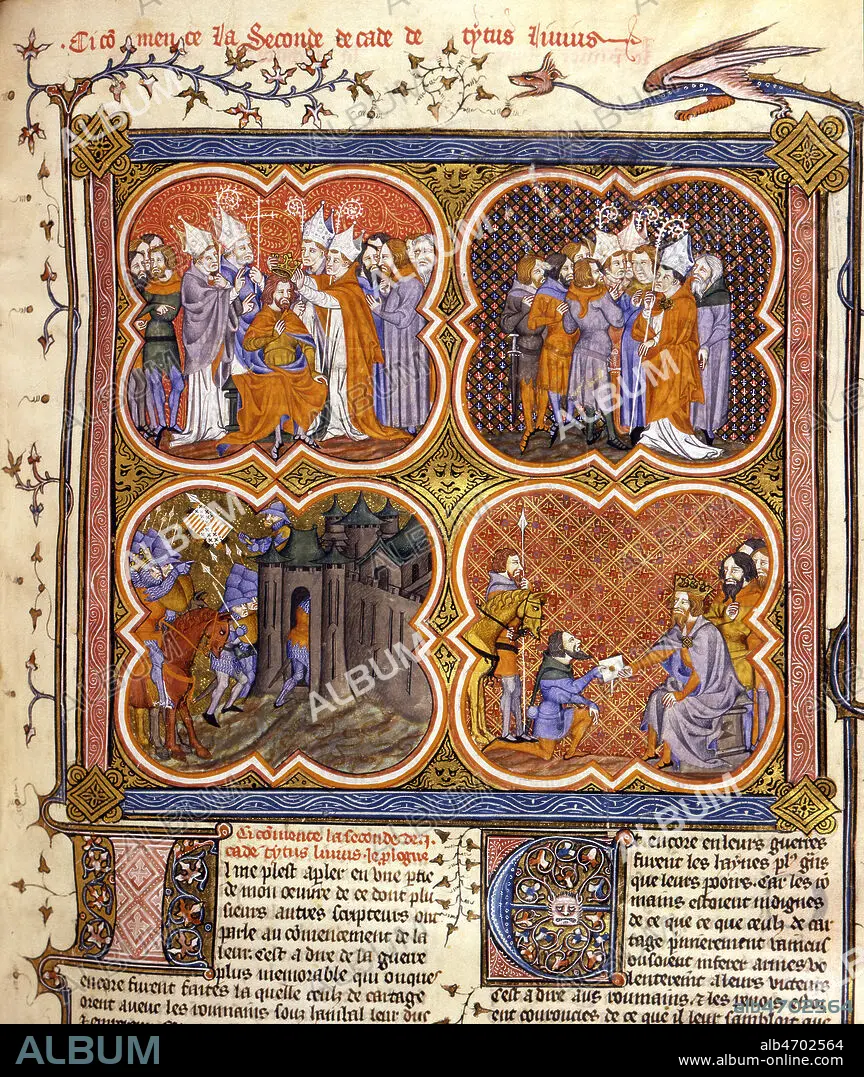 Ci cõmence la Seconde decade de tytus liuius
Ci cõmence la seconde de
cade tytus liuius. le plogue
I me plest apler en vne ptie
de mon oeuure de ce dont plu
sieurs autres scripteurs ont
parle au cõmencement de la
leur. C'est a dire de la guerre
plus memorable qui onques
encore furent faites la quelle ceuls de cartage
orent auecques les rommains souz
E t encore en leurs guerres
furent les haynes pl9 grãs
que leurs pooirs. Car les ro
mains estoient indignes
de ce que ce que ceuls de car
tage premierement vaincus
ousoient inferer armes vo
lenterement a leurs victeurs
c'est a dire aus rommains. & les
ent courouciés de ce que il leur sembloit que
ALBUM
alb4702564
ALBUM
alb4702564
www.album-online.com